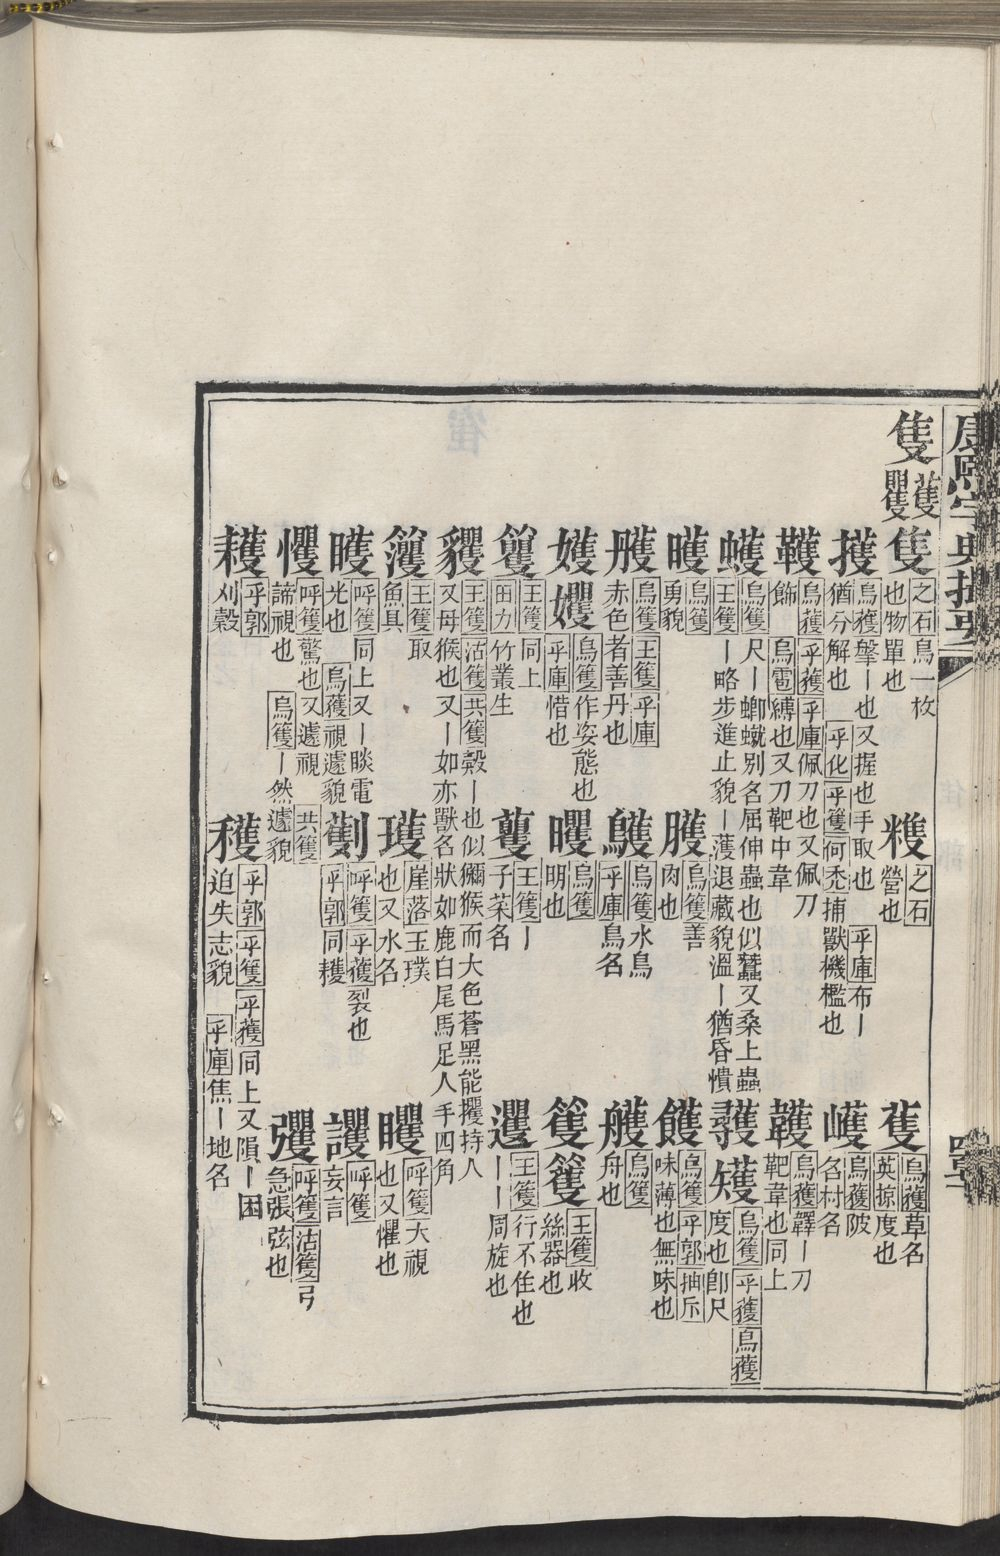 康熙字典撮要
隻 蒦 矍
隻 之石鳥一枚也物單也
䊮 之石營也
蒦 烏蒦草名英掠度也
擭 烏蒦擥丨也又握也手取也乎庫布丨猶分解也乎化乎篗何禿捕獸機檻也
嶬 烏蒦陂名村名
鞾 烏蒦乎蒦乎庫佩刀也又佩刀飾烏雹縛也又刀靶中韋
韄 烏蒦韄丨刀靶韋也同上
蠖 烏篗尺丨蝍蠘別名屈伸蟲也似蠶又桑上蟲王篗丨略步進止貌丨濩退藏貌溫丨猶昏憒
彠 矱 烏篗乎蒦烏蒦度也卽尺
矆 烏篗勇貌
臒 烏篗善肉也
䭨 烏篗乎郭抽斥味薄也無味也
雘 烏篗王篗乎庫赤色者善丹也
鸌 烏篗水鳥乎庫鳥名
艧 烏篗舟也
嬳 孇 烏篗作姿態也乎庫惜也
矍 烏篗明也
篗 籰 王篗收絲器也
籆 王篗同上田力竹叢生
蘉 王篗丨子菜名
躩 王篗行不住也丨丨周旋也
貜 王篗沽篗共篗㺉丨也似獼猴而大色蒼黑能攫持人又母猴也又丨如亦獸名狀如鹿白尾馬足人手四角
籗 王篗取魚具
瓁 崖落玉璞也又水名
矍 呼篗大視也又懼也
矆 呼篗同上又丨睒電光也烏蒦視遽貌
劐 呼篗乎蒦裂也乎郭同擭
謢 呼篗妄言
戄 呼篗驚也又遽視共篗諦視也烏篗丨然遽貌
彏 呼篗沽篗弓急張弦也
耯 乎郭刈穀
穫 乎郭乎篗乎蒦同上又隕丨困迫失志貌乎庫焦丨地名